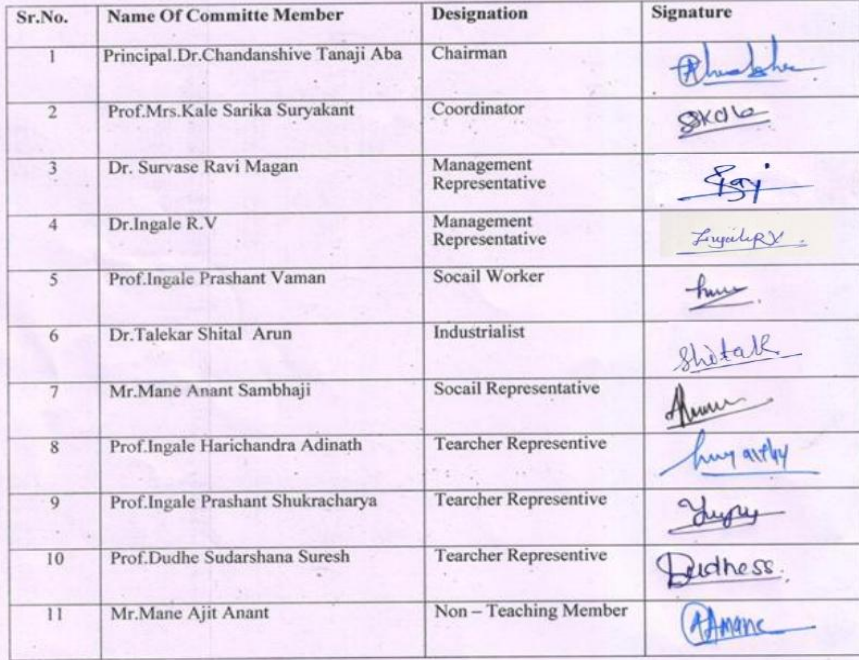 Sr.No. Name Of Committe Member Designation Signature
1 Principal.Dr.Chandanshive Tanaji Aba Chairman
2 Prof.Mrs.Kale Sarika Suryakant Coordinator SSKale
3 Dr. Survase Ravi Magan Management
Representative
4 Dr.Ingale R.V Management
Representative IngaleRV
5 Prof.Ingale Prashant Vaman Socail Worker
6 Dr.Talekar Shital Arun Industrialist Shital
7 Mr.Mane Anant Sambhaji Socail Representative
8 Prof.Ingale Harichandra Adinath Tearcher Representive
9 Prof.Ingale Prashant Shukracharya Tearcher Representive
10 Prof.Dudhe Sudarshana Suresh Tearcher Representive Dudhess.
11 Mr.Mane Ajit Anant Non – Teaching Member AAmane